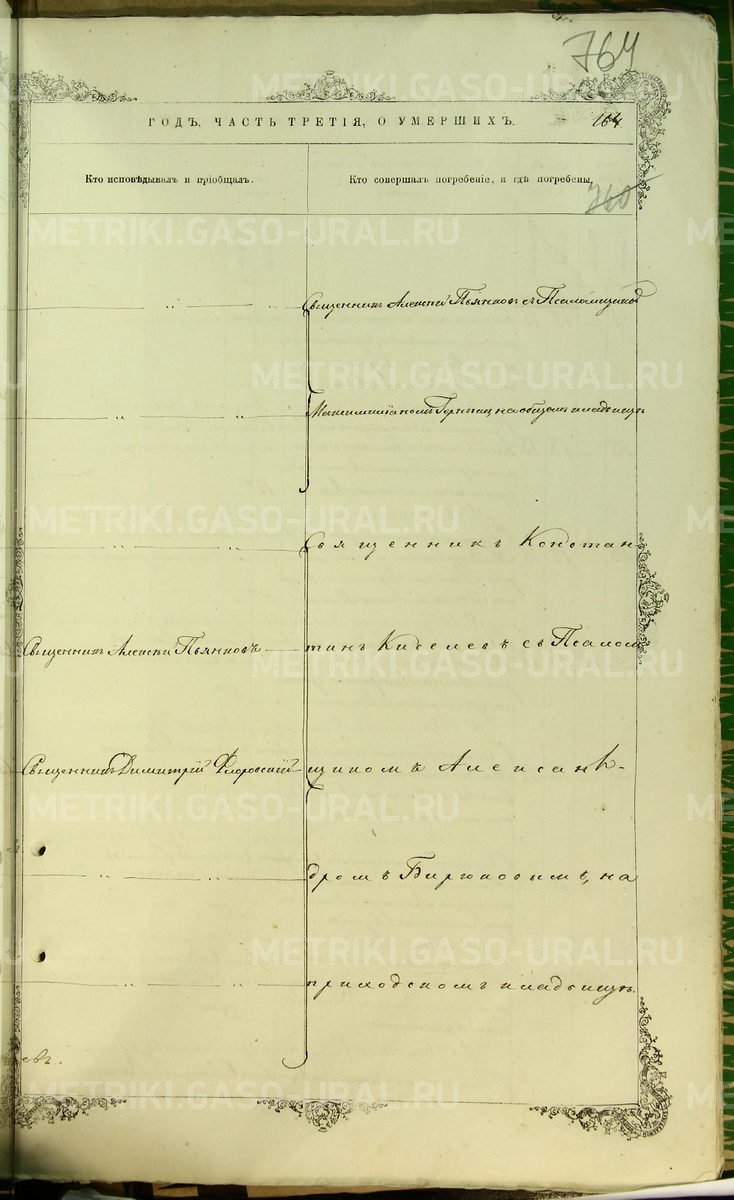 764
ГОДЪ, ЧАСТЬ ТРЕТІЯ, О УМЕРШИХЪ.
164
Кто исповѣдывалъ и пріобщалъ.
Кто совершалъ погребеніе, и гдѣ погребены.
760
Священникъ Алексѣй Пьянковъ съ Псаломщикомъ
Максимиліаномъ на общемъ кладбищѣ
Священникъ Констан
Священникъ Алексѣй Пьянковъ
тинъ Киселевъ съ Псалом
Священникъ Димитрій Флоровскій
щикомъ Алексан-
дромъ Бирюковымъ, на
приходскомъ кладбищѣ.
METRIKI.GASO-URAL.RU